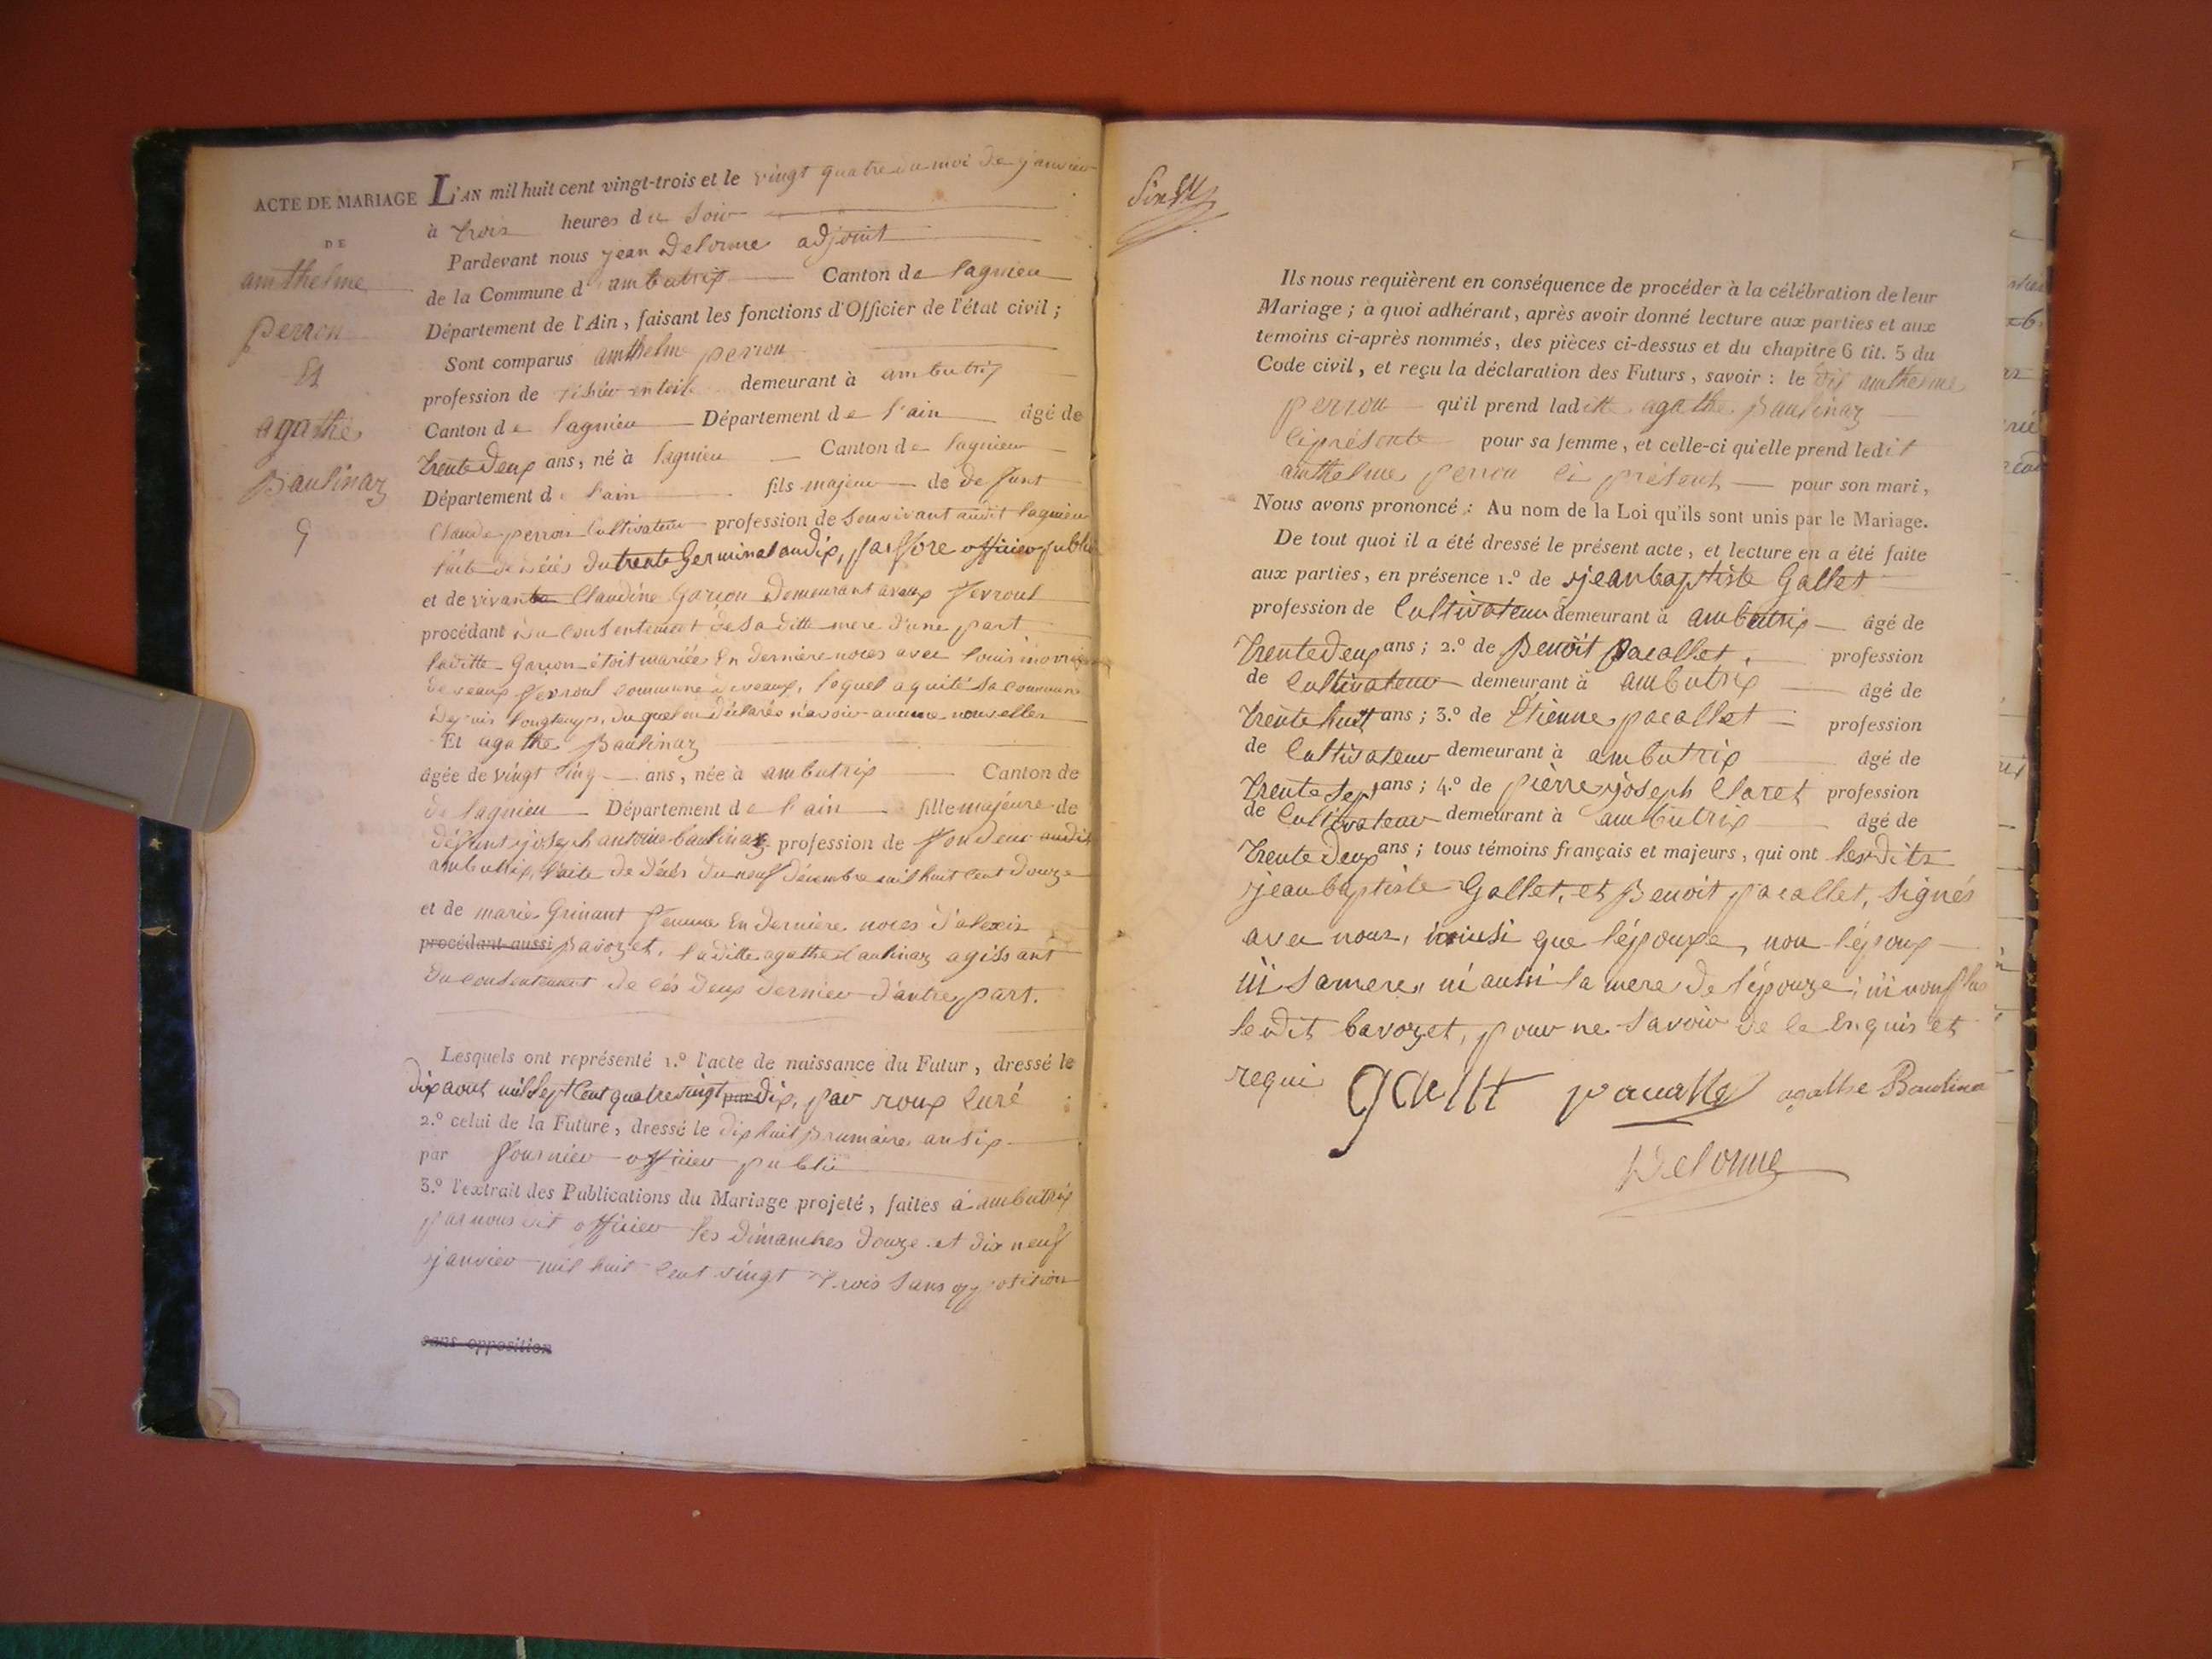 ACTE DE MARIAGE
DE
amthelme
perron
Et
agathe
Baulinaz
L'AN mil huit cent vingt-trois et le vingt quatre du moi de janvier
à trois heures du Soir
Pardevant nous jean Delorme adjoint
de la Commune d'ambutrix Canton de lagnieu
Département de l'Ain, faisant les fonctions d'Officier de l'état civil;
Sont comparus amthelme perron
profession de demeurant à ambutrix
Canton de lagnieu Département de l'ain âgé de
trente Deux ans, né à lagnieu Canton de lagnieu
Département de l'ain fils majeur de defunt
Claude perron Cultivateur profession de Son vivant audit lagnieu
l'acte de décès du trente Germinal an dix, par officier public
et de vivante Claudine Garion Demeurant avaux fevroul
procédant du Consentement de Sa ditte mere d'une part
laditte Garion étoit mariée En dernière noces avec louis
de veaux fevroul commune de veaux, lequel a quité Sa commune
depuis longtemps, duquel on déclare n'avoir aucune nouvelles
Et agathe Baulinaz
agée de vingt Cinq ans, née à ambutrix Canton de
de lagnieu Département de l'ain fille majeure de
défunt joseph antoine baulinaz profession de fondeur audit
ambutrix, l'acte de décès du neuf décembre mil huit Cent Douze
et de marie Grinant femme En dernière noces d'alexis
procédant aussi bavozet, laditte agathe baulinaz agissant
Du Consentement de Cés Deux dernier d'autre part.
Lesquels ont représenté 1.º l'acte de naissance du Futur, dressé le
dix aout mil Sept Cent quatre vingt dix, par roux Curé
2.º celui de la Future, dressé le dix huit Brumaire an Six
par fournier officier public
3.º l'extrait des Publications du Mariage projeté, faites à ambutrix
par nous dit officier les dimanches douze et dix neuf
janvier mil huit Cent vingt trois Sans opposition
sans opposition
Ils nous requièrent en conséquence de procéder à la célébration de leur
Mariage; à quoi adhérant, après avoir donné lecture aux parties et aux
temoins ci-après nommés, des pièces ci-dessus et du chapitre 6 tit. 5 du
Code civil, et reçu la déclaration des Futurs, savoir: le dit amthelme
perron qu'il prend laditte agathe Baulinaz
Ciprésente pour sa femme, et celle-ci qu'elle prend ledit
amthelme perron Ci présent pour son mari,
Nous avons prononcé: Au nom de la Loi qu'ils sont unis par le Mariage.
De tout quoi il a été dressé le présent acte, et lecture en a été faite
aux parties, en présence 1.º de jean baptiste Gallet
profession de Cultivateur demeurant à ambutrix âgé de
trente deux ans; 2.º de Benoit pacallet, profession
de Cultivateur demeurant à ambutrix âgé de
trente huit ans; 3.º de Etienne pacallet profession
de Cultivateur demeurant à ambutrix âgé de
trente Sept ans; 4.º de pierre joseph Claret profession
de Cultivateur demeurant à ambutrix âgé de
trente deux ans; tous témoins français et majeurs, qui ont lesdits
jean baptiste Gallet, et Benoit pacallet, Signés
avec nous, ainsi que l'épouze, non l'époux
ni Sa mere, ni aussi la mere de l'épouze, ni non plus
le dit bavozet, pour ne Savoir de le Enquis et
requi
agathe Baulina
Delorme